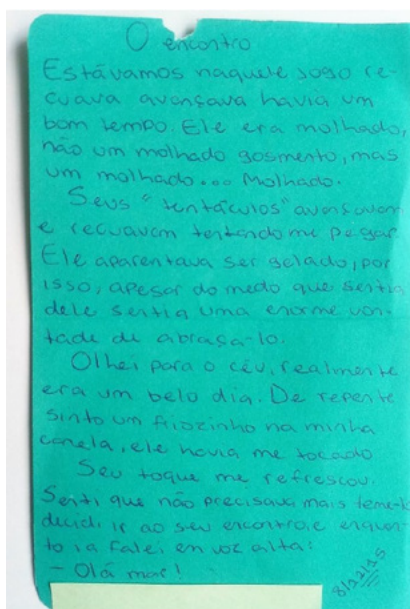 O encontro
Estávamos naquele jogo re-
cuava avançava havia um
bom tempo. Ele era molhado,
não um molhado gosmento, mas
um molhado... Molhado.
Seus "tentáculos" avançavam
e recuavam tentando me pegar
Ele aparentava ser gelado, por
isso, apesar do medo que sentia
dele sentia uma enorme von-
tade de abraça-lo.
Olhei para o céu, realmente
era um belo dia. De repente
sinto um friozinho na minha
canela, ele havia me tocado
Seu toque me refrescou.
Senti que não precisava mais teme-lo
decidi ir ao seu encontro, e enquan-
to ia falei em voz alta:
- Olá mar!